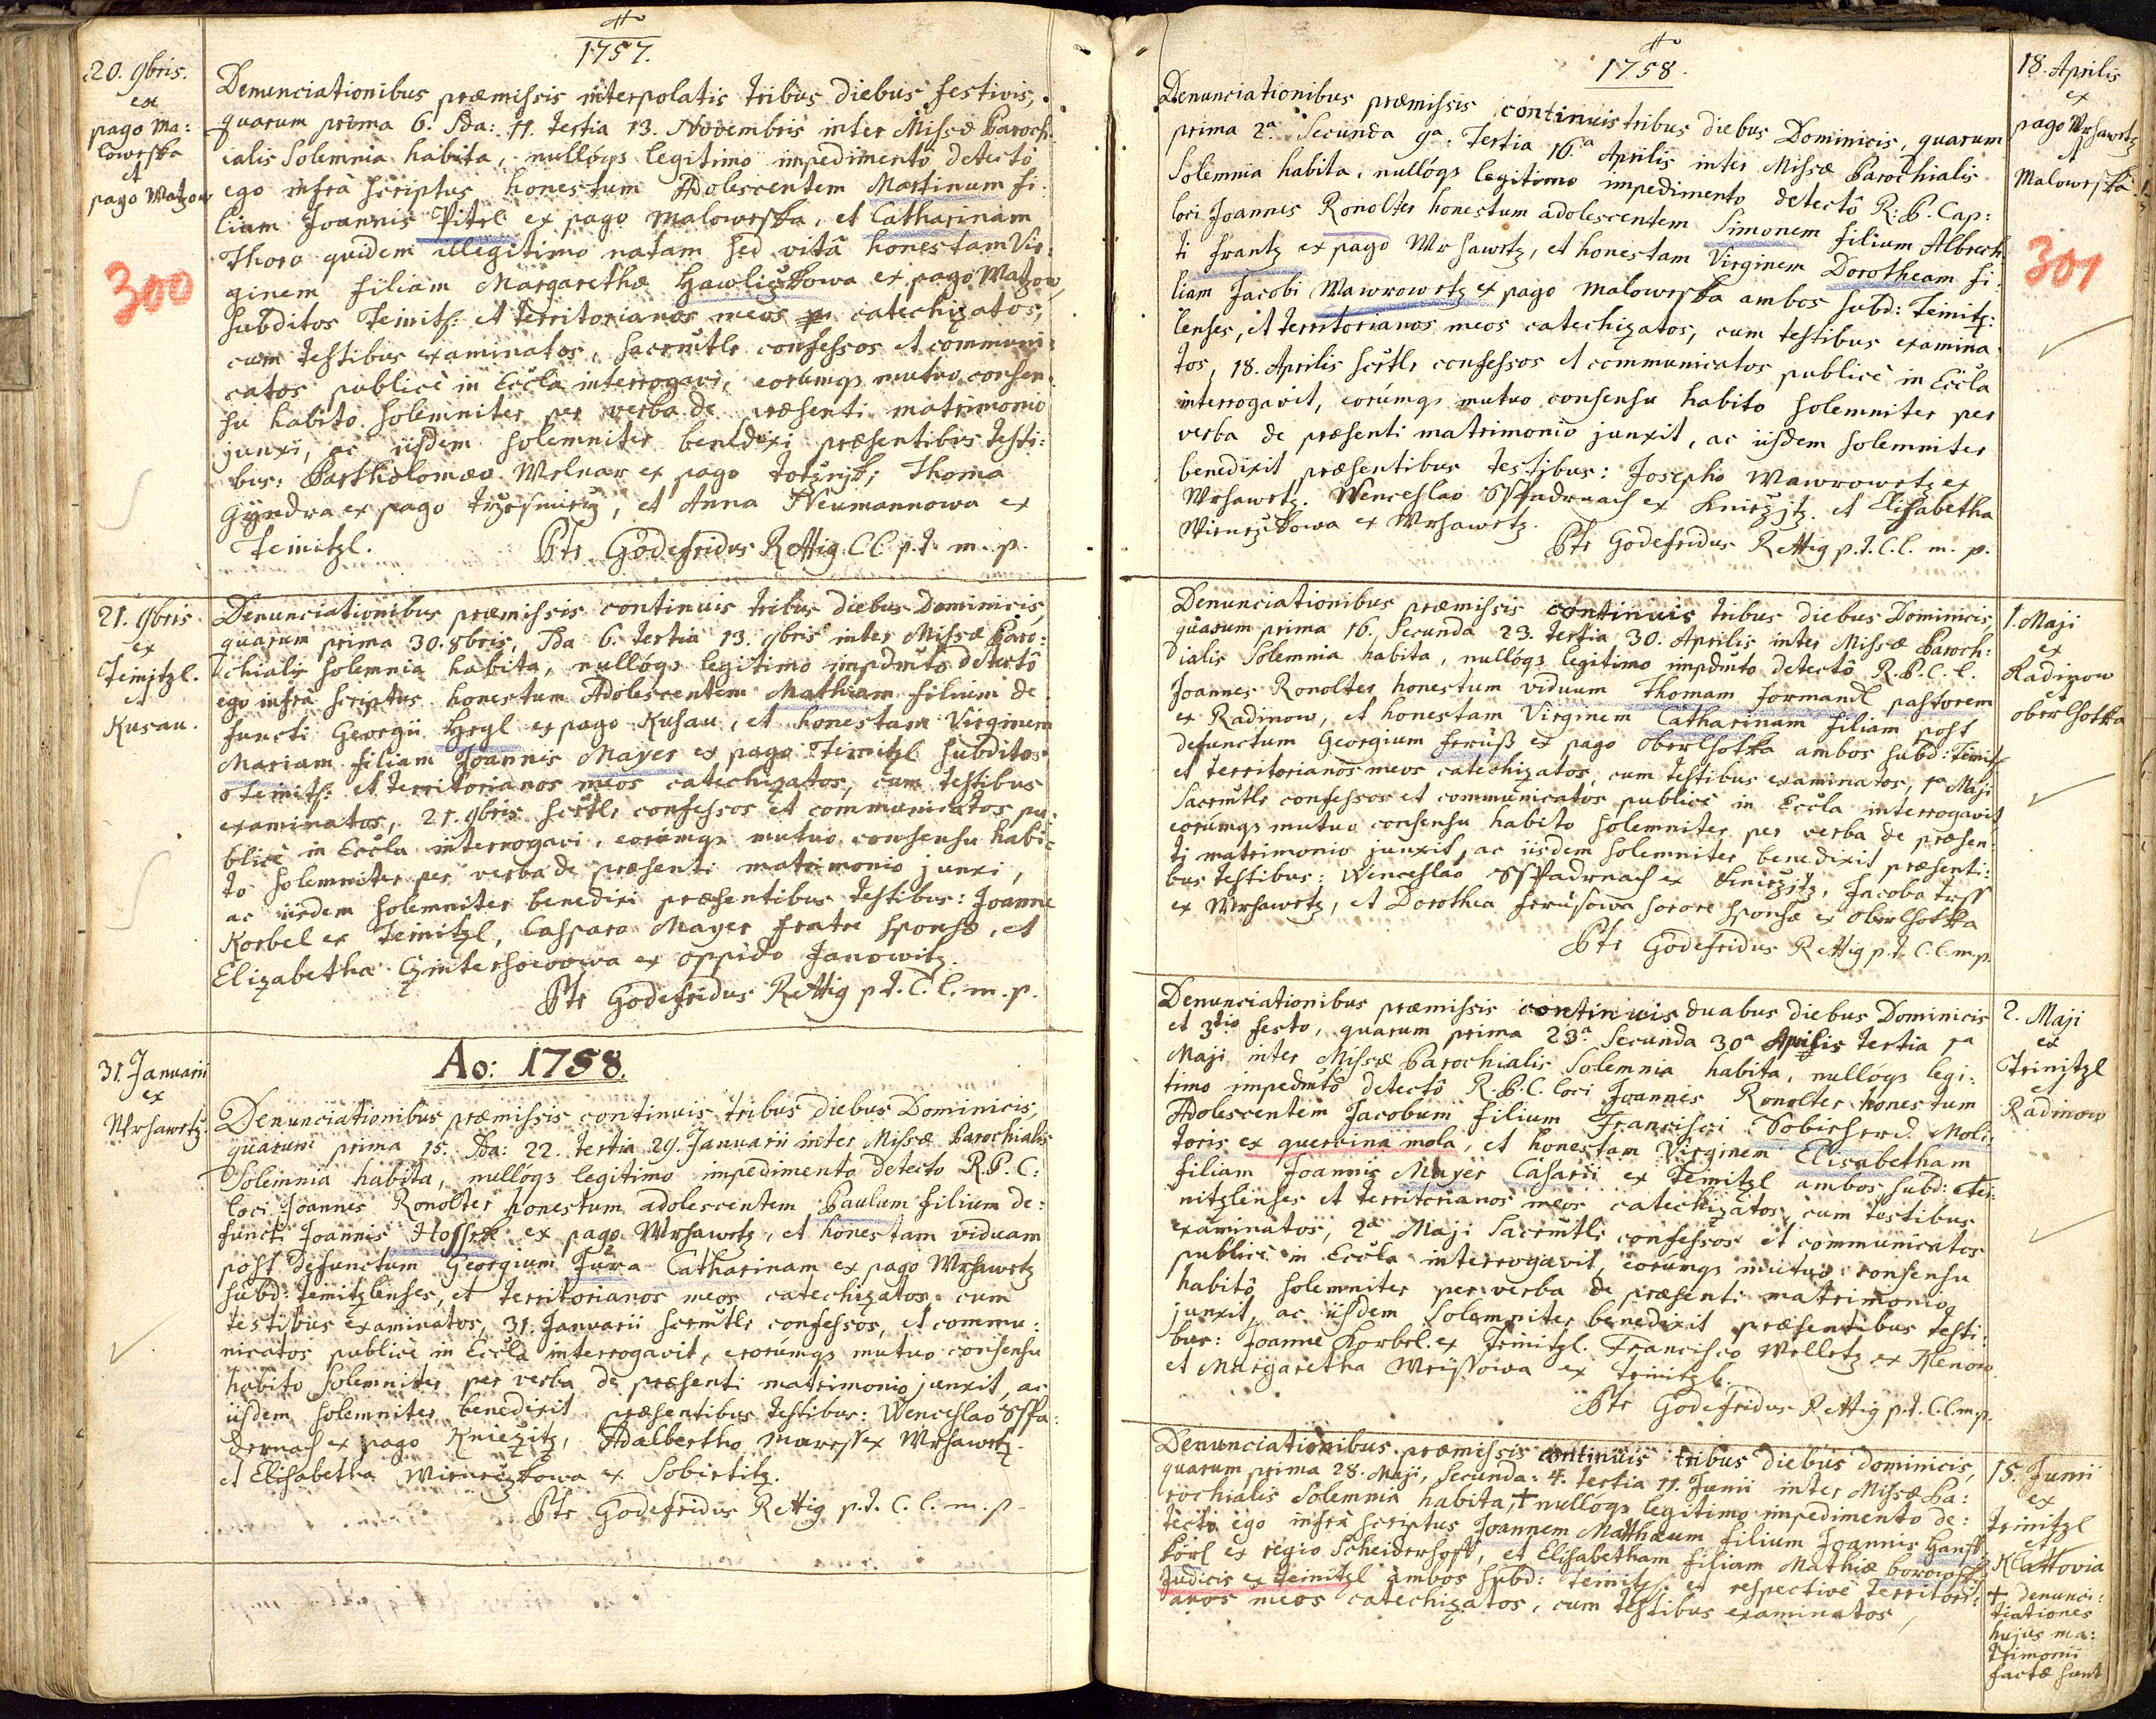 1757.
20. 9bris.
ex
pago Ma:
loweska
et
pago Watzow
300
Denunciationibus præmissis interpolatis tribus diebus festivis,
quarum prima 6. 2da: 11. tertia 13. Novembris inter Missæ Paroch:
ialis Solemnia habita, nullóqs legitimo impedimento detectô
ego infrà scriptus honestum Adolescentem Martinum fi:
lium Joannis Pitel ex pago Maloweska, et Catharinam
Thoro quidem illegitimo natam sed vitâ honestam Vir:
ginem filiam Margarethæ Hawliczkowa ex pago Watzow
subditos Teinitz: et territorianos meos catechizatos,
cum testibus examinatos, sacrmtlr confessos et communi:
catos publicè in Eccla interrogavi, eorúmqs mutuo consen:
su habito solemniter per verba de præsenti matrimonio
junxi, ac iisdem solemniter benedixi præsentibus testi:
bus: Bartholomæo Welnar ex pago Totznik; Thoma
Gyndra ex pago , et Anna Neumannowa ex
Teinitzl.
Ptr Godefridus Rettig C.C. p.t. m. p.
21. 9bris
ex
Teinitzl.
et
Kusau.
Denunciationibus præmissis continuis tribus diebus Dominicis,
quarum prima 30. 8bris, 2da 6. tertia 13. 9bris inter Missæ Paro:
chialis solemnia habita, nullóqs legitimo impdmto detectô
ego infrà scriptus honestum Adolescentem Mathiam filium de
functi Georgii Hegl ex pago Kusau, et honestam Virginem
Mariam filiam Joannis Mayer ex pago Teinitzl subditos
Teinitz: et territorianos meos catechizatos, cum testibus
examinatos, 21. 9bris scrtlr confessos et communicatos pu:
blicè in Eccla interrogavi, eorúmqs mutuo consensu habi:
to solemniter per verba de præsenti matrimonio junxi,
ac iisdem solemniter benedixi præsentibus testibus: Joanne
Korbel ex Teinitzl, Casparo Mayer fratre sponsæ, et
Elizabetha ex oppido Janowitz.
Ptr Godefridus Rettig p.t. C.C. m. p.
Ao: 1758.
31. Januarii
ex
Wrhawetz.
Denunciationibus præmissis continuis tribus diebus Dominicis,
quarum prima 15. 2da: 22. tertia 29. Januarii inter Missæ Parochialis
Solemnia habita, nullóqs legitimo impedimento detecto R.P.C:
loci Joannes Ronolter honestum adolescentem Paulum filium de:
functi Joannis Hossek ex pago Wrhawetz, et honestam viduam
post defunctum Georgium Jura Catharinam ex pago Wrhawetz
subd: Teinitzlenses, et territorianos meos catechizatos, cum
testibus examinatos, 31. Januarii scrmtlr confessos, et commu:
nicatos publicè in Eccla interrogavit, eorúmqs mutuo consensu
habito solemniter per verba de præsenti matrimonio junxit, ac
iisdem solemniter benedixit præsentibus testibus: Wenceslao Sspa:
dernach ex pago Kniezitz, Adalbertho Maress ex Wrhawetz.
et Elisabetha ex Sobietitz.
Ptr Godefridus Rettig p.t. C.C. m. p.
1758.
18. Aprilis
ex
pago Wrhawetz
et
Maloweska
301
Denunciationibus præmissis continuis tribus diebus Dominicis, quarum
prima 2a. Secunda 9a. Tertia 16.a Aprilis inter Missæ Parochialis
Solemnia habita, nullóqs legitimo impedimento detectô R:P. Cap:
loci Joannes Ronolter honestum adolescentem Simonem filium Albrech
ti Frantz ex pago Wrhawetz, et honestam Virginem Dorotheam fi:
liam Jacobi Wawrowetz ex pago Maloweska ambos subd: Teinitz:
lenses, et territorianos meos catechizatos, cum testibus examina
tos, 18. Aprilis scrtlr confessos et communicatos publicè in Eccla
interrogavit, eorúmqs mutuo consensu habito solemniter per
verba de præsenti matrimonio junxit, ac iisdem solemniter
benedixit præsentibus testibus: Josepho Wawrowetz ex
Wrhawetz. Wenceslao Sspadrnach ex Kniezitz. et Elisabetha
ex Wrhawetz.
Ptr Godefridus Rettig p.t. C.C. m. p.
1. Maji
ex
Radinow
et
Oberlhotka
Denunciationibus præmissis continuis tribus diebus Dominicis
quarum prima 16. Secunda 23. tertia 30. Aprilis inter Missæ Paroch:
ialis Solemnia habita, nullóqs legitimo impdmto detectô R.P.C.l.
Joannes Ronolter honestum viduum Thomam Formandl pastorem
ex Radinow, et honestam Virginem Catharinam filiam post
defunctum Georgium ex pago Oberlhotka ambos subd: Teinitz
et territorianos meos catechizatos, cum testibus examinatos, 1a Maji
Sacrmtlr confessos et communicatos publicè in Eccla interrogavit
eorúmqs mutuo consensu habito solemniter per verba de præsen:
ti matrimonio junxit, ac iisdem solemniter benedixit præsenti:
bus testibus: Wenceslao Sspadrnach ex Kniezitz, Jacobo
ex Wrhawetz, et Dorothea sorore sponsæ ex Oberlhotka
Ptr Godefridus Rettig p.t. C.C. m. p.
2. Maji
ex
Teinitzl
et
Radinow
Denunciationibus præmissis continuis duabus diebus Dominicis
et 3tio festo, quarum prima 23a. Secunda 30a Aprilis tertia 1a
Maji inter Missæ Parochialis Solemnia habita, nullóqs legi:
timo impedmto detectô R.P.C. loci Joannes Ronolter honestum
Adolescentem Jacobum filium Francisci Moli:
toris ex quercina mola, et honestam Virginem Elisabetham
filiam Joannis Mayer Casarii ex Teinitzl ambos subd: Tei:
nitzlenses et territorianos meos catechizatos, cum testibus
examinatos, 2a Maji Sacrmtlr confessos et communicatos
publicè in Eccla interrogavit, eorúmqs mutuo consensu
habitô solemniter per verba de præsenti matrimonio
junxit, ac iisdem Solemniter benedixit præsentibus testi:
bus: Joanne Korbel ex Teinitzl. Francisco Welletz ex Klenow
et Margaretha ex Teinitzl.
Ptr Godefridus Rettig p.t. C.C. m. p.
15. Junii
ex
Teinitzl
et
Klattovia
+ denunci:
tiationes
hujus ma:
trimonii
factæ sunt
Denunciationibus præmissis continuis tribus diebus dominicis,
quarum prima 28. Maji, Secunda: 4. tertia 11. Junii inter Missæ Pa:
rochialis Solemnia habita, + nullóqs legitimo impedimento de:
tecto ego infrà scriptus Joannem Matthæum filium Joannis Hanss
körl ex regio Scheiderhoff, et Elisabetham filiam Mathiæ
Judicis ex Teinitzl ambos subd: Teinitz: et respectivè territori:
anos meos catechizatos, cum testibus examinatos,